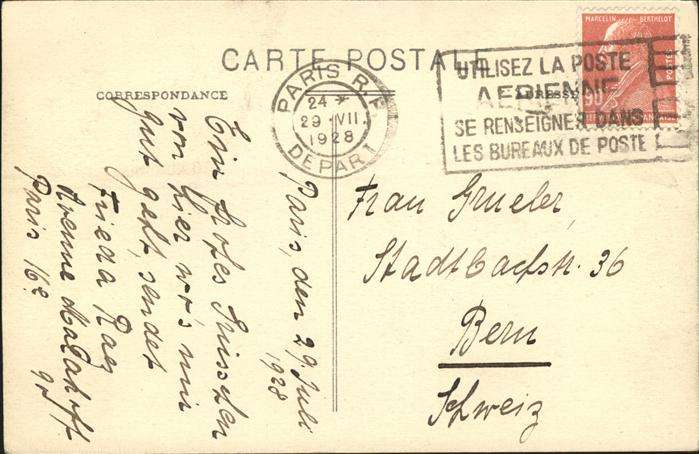 CARTE POSTALE
CORRESPONDANCE
ADRESSE
MARCELIN BERTHELOT
POSTES
90
PARIS R.P.
24 *
29 · VII
1928
DEPART
UTILISEZ LA POSTE
AERIENNE
SE RENSEIGNER DANS
LES BUREAUX DE POSTE
Paris, den 29. Juli
1928
Ein frohes Grüsschen
von hier wo's mir
gut geht, sendet
Frieda
Avenue Malakoff
Paris 16e
Frau Grueler,
Stadtbachstr. 36
Bern
Schweiz